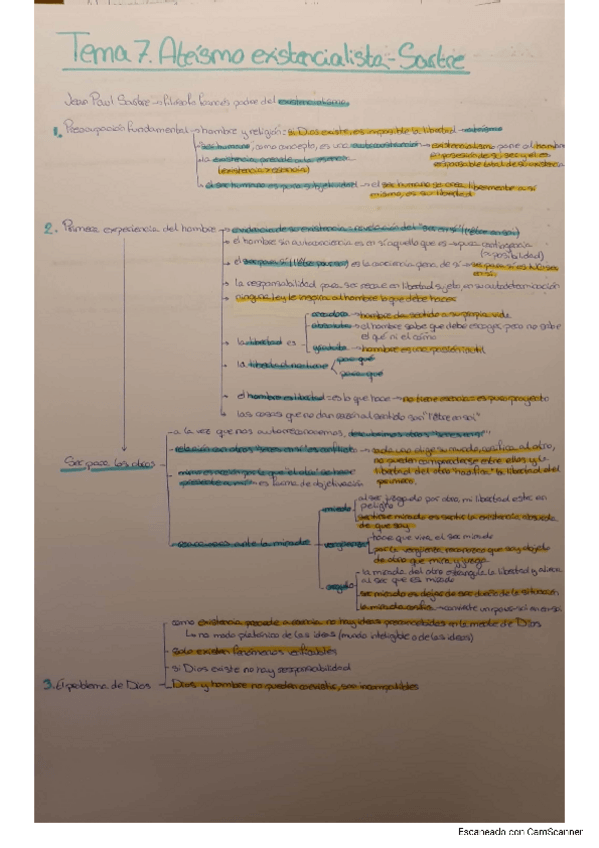 Tema 7. Ateísmo existencialista - Sartre
Jean Paul Sartre → filósofo francés padre del existencialismo
1. Preocupación fundamental → hombre y religión: si Dios existe, es imposible la libertad → ateísmo
ser humano, como concepto, es una → existencialismo pone al hombre
en posesión de su ser y él es
la existencia precede a la esencia responsable total de su existencia
(existencia > esencia)
el ser humano es pura subjetividad → el ser humano se crea libremente a sí
mismo, es su libertad
2. Primera experiencia del hombre → evidencia de su existencia: revelación del "ser en sí" (l'être en soi)
el hombre sin autoconciencia es en sí aquello que es → pura contingencia
(≈ posibilidad)
el ser para sí (l'être pour soi) es la conciencia plena de sí → ser para sí es ser en sí
la responsabilidad para ser recae en libertad sujeto, en su autodeterminación
ninguna ley le inspira al hombre lo que debe hacer
la libertad es
creadora → hombre da sentido a su propia vida
absoluta → el hombre sabe que debe escoger, pero no sabe
el qué ni el cómo
gratuita → hombre es una pasión inútil
la libertad no tiene
por qué
para qué
el hombre es libertad: es lo que hace → no tiene esencia: es puro proyecto
las cosas que no dan razón al sentido son "l'être en soi"
Ser para los otros
a la vez que nos autorreconocemos, descubrimos otros "seres en sí"
relación con otros "seres en sí" es conflicto → cada uno elige su mundo, cosifica al otro,
no pueden comprenderse entre ellos y la
libertad del otro "nadifica" la libertad del
primero.
mirar es acción por la que "el otro" se hace
presente a mí → es forma de objetivación
reacciones ante la mirada
miedo
al ser juzgado por otro, mi libertad está en
peligro
sentirse mirado es sentir la existencia absurda
de que soy
vergüenza
hace que viva el ser mirado
por la vergüenza, reconozco que soy objeto
de otro que mira y juzga
orgullo
la mirada del otro estrangula la libertad y aliena
al ser que es mirado
ser mirado es dejar de ser dueño de la situación
la mirada cosifica → convierte un para-sí en en-sí
3. El problema de Dios
como existencia precede a esencia no hay ideas preconcebidas en la mente de Dios
↳ no modo platónico de las ideas (mundo inteligible o de las ideas)
solo existen fenómenos verificables
si Dios existe no hay responsabilidad
Dios y hombre no pueden coexistir, son incompatibles
Escaneado con CamScanner